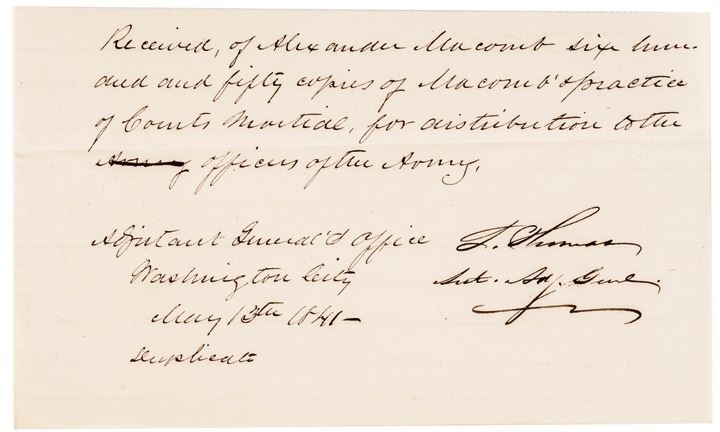 Received, of Alexander Macomb six hun-
dred and fifty copies of Macomb's practice
of Courts Martial, for distribution to the
Army officers of the Army.
Adjutant General's Office L. Thomas
Washington City Asst. Adj. Genl.
May 13th 1841 -
Duplicate